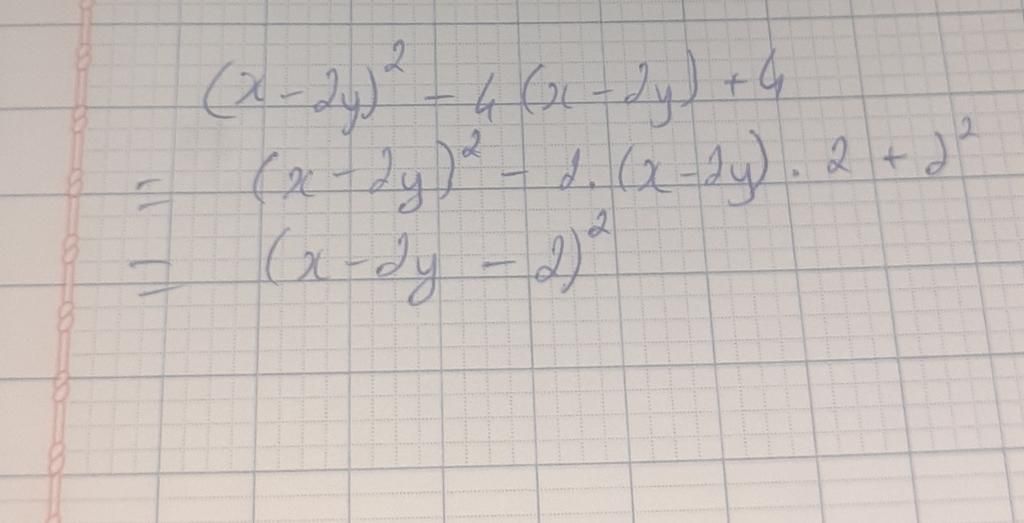 (x - 2y)² - 4 (x - 2y) + 4
= (x - 2y)² - 2. (x - 2y) . 2 + 2²
= (x - 2y - 2)²